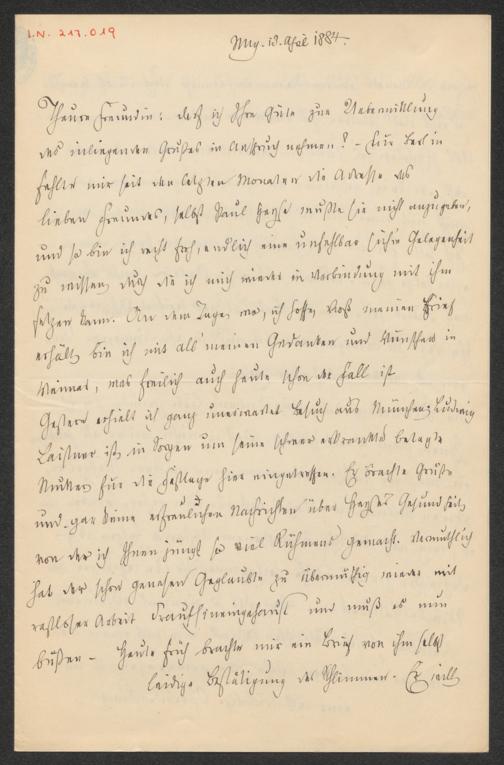 I.N. 217.019
Mgg. 13. April 1884.
Theure Freundin: darf ich Ihre Güte zur Uebermittlung
des inliegenden Grußes in Anspruch nehmen? – Für Berlin
fehlte mir seit den letzten Monaten die Adresse des
lieben Freundes, selbst Paul Heyse wußte sie nicht anzugeben,
und so bin ich recht froh, endlich eine unfehlbar sichre Gelegenheit
zu wissen, durch die ich mich wieder in Verbindung mit ihm
setzen kann. An dem Tage, wo, ich hoffe, Voß meinen Brief
erhält, bin ich mit all' meinen Gedanken und Wünschen in
Weimar, was freilich auch heute schon der Fall ist
Gestern erhielt ich ganz unerwartet Besuch aus München; Ludwig
Laistner ist, in Sorgen um seine schwer erkrankte betagte
Mutter für die Festtage hier eingetroffen. Er brachte Grüße
und gar keine erfreulichen Nachrichten über Heyse's Gesundheit,
von der ich Ihnen jüngst so viel Rühmens gemacht. Vermuthlich
hat der schon genesen Geglaubte zu übermüthig wieder mit
rastloser Arbeit drauf hineingehaust und muß es nun
büßen – Heute früh brachte mir ein Brief von ihm selbst
leidige Bestätigung des Schlimmen. Er will